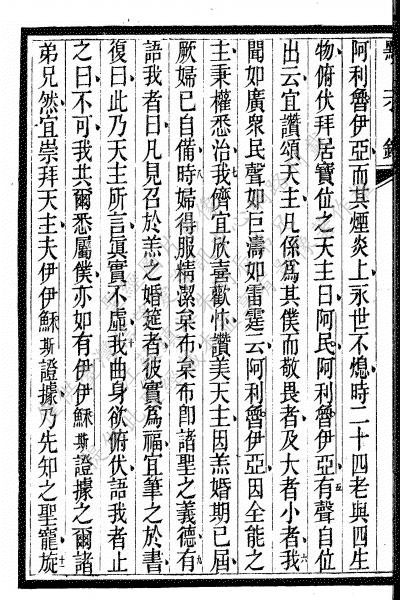 阿利魯伊亞而其煙炎上永世不熄時二十四老與四生
物俯伏拜居寶位之天主曰阿民阿利魯伊亞五有聲自位
出云宜讚頌天主凡係爲其僕而敬畏者及大者小者六我
聞如廣衆民聲如巨濤如雷霆云阿利魯伊亞因全能之
主秉權悉治七我儕宜欣喜歡忭讚美天主因羔婚期已屆
厥婦已自備八時婦得服精潔枲布枲布卽諸聖之義德九有
語我者曰凡見召於羔之婚筵者彼實爲福宜筆之於書
復曰此乃天主所言眞實不虛十我曲身欲俯伏語我者止
之曰不可我共爾悉屬僕亦如有伊伊穌斯證據之爾諸
弟兄然宜崇拜天主夫伊伊穌斯證據乃先知之聖寵十一旋